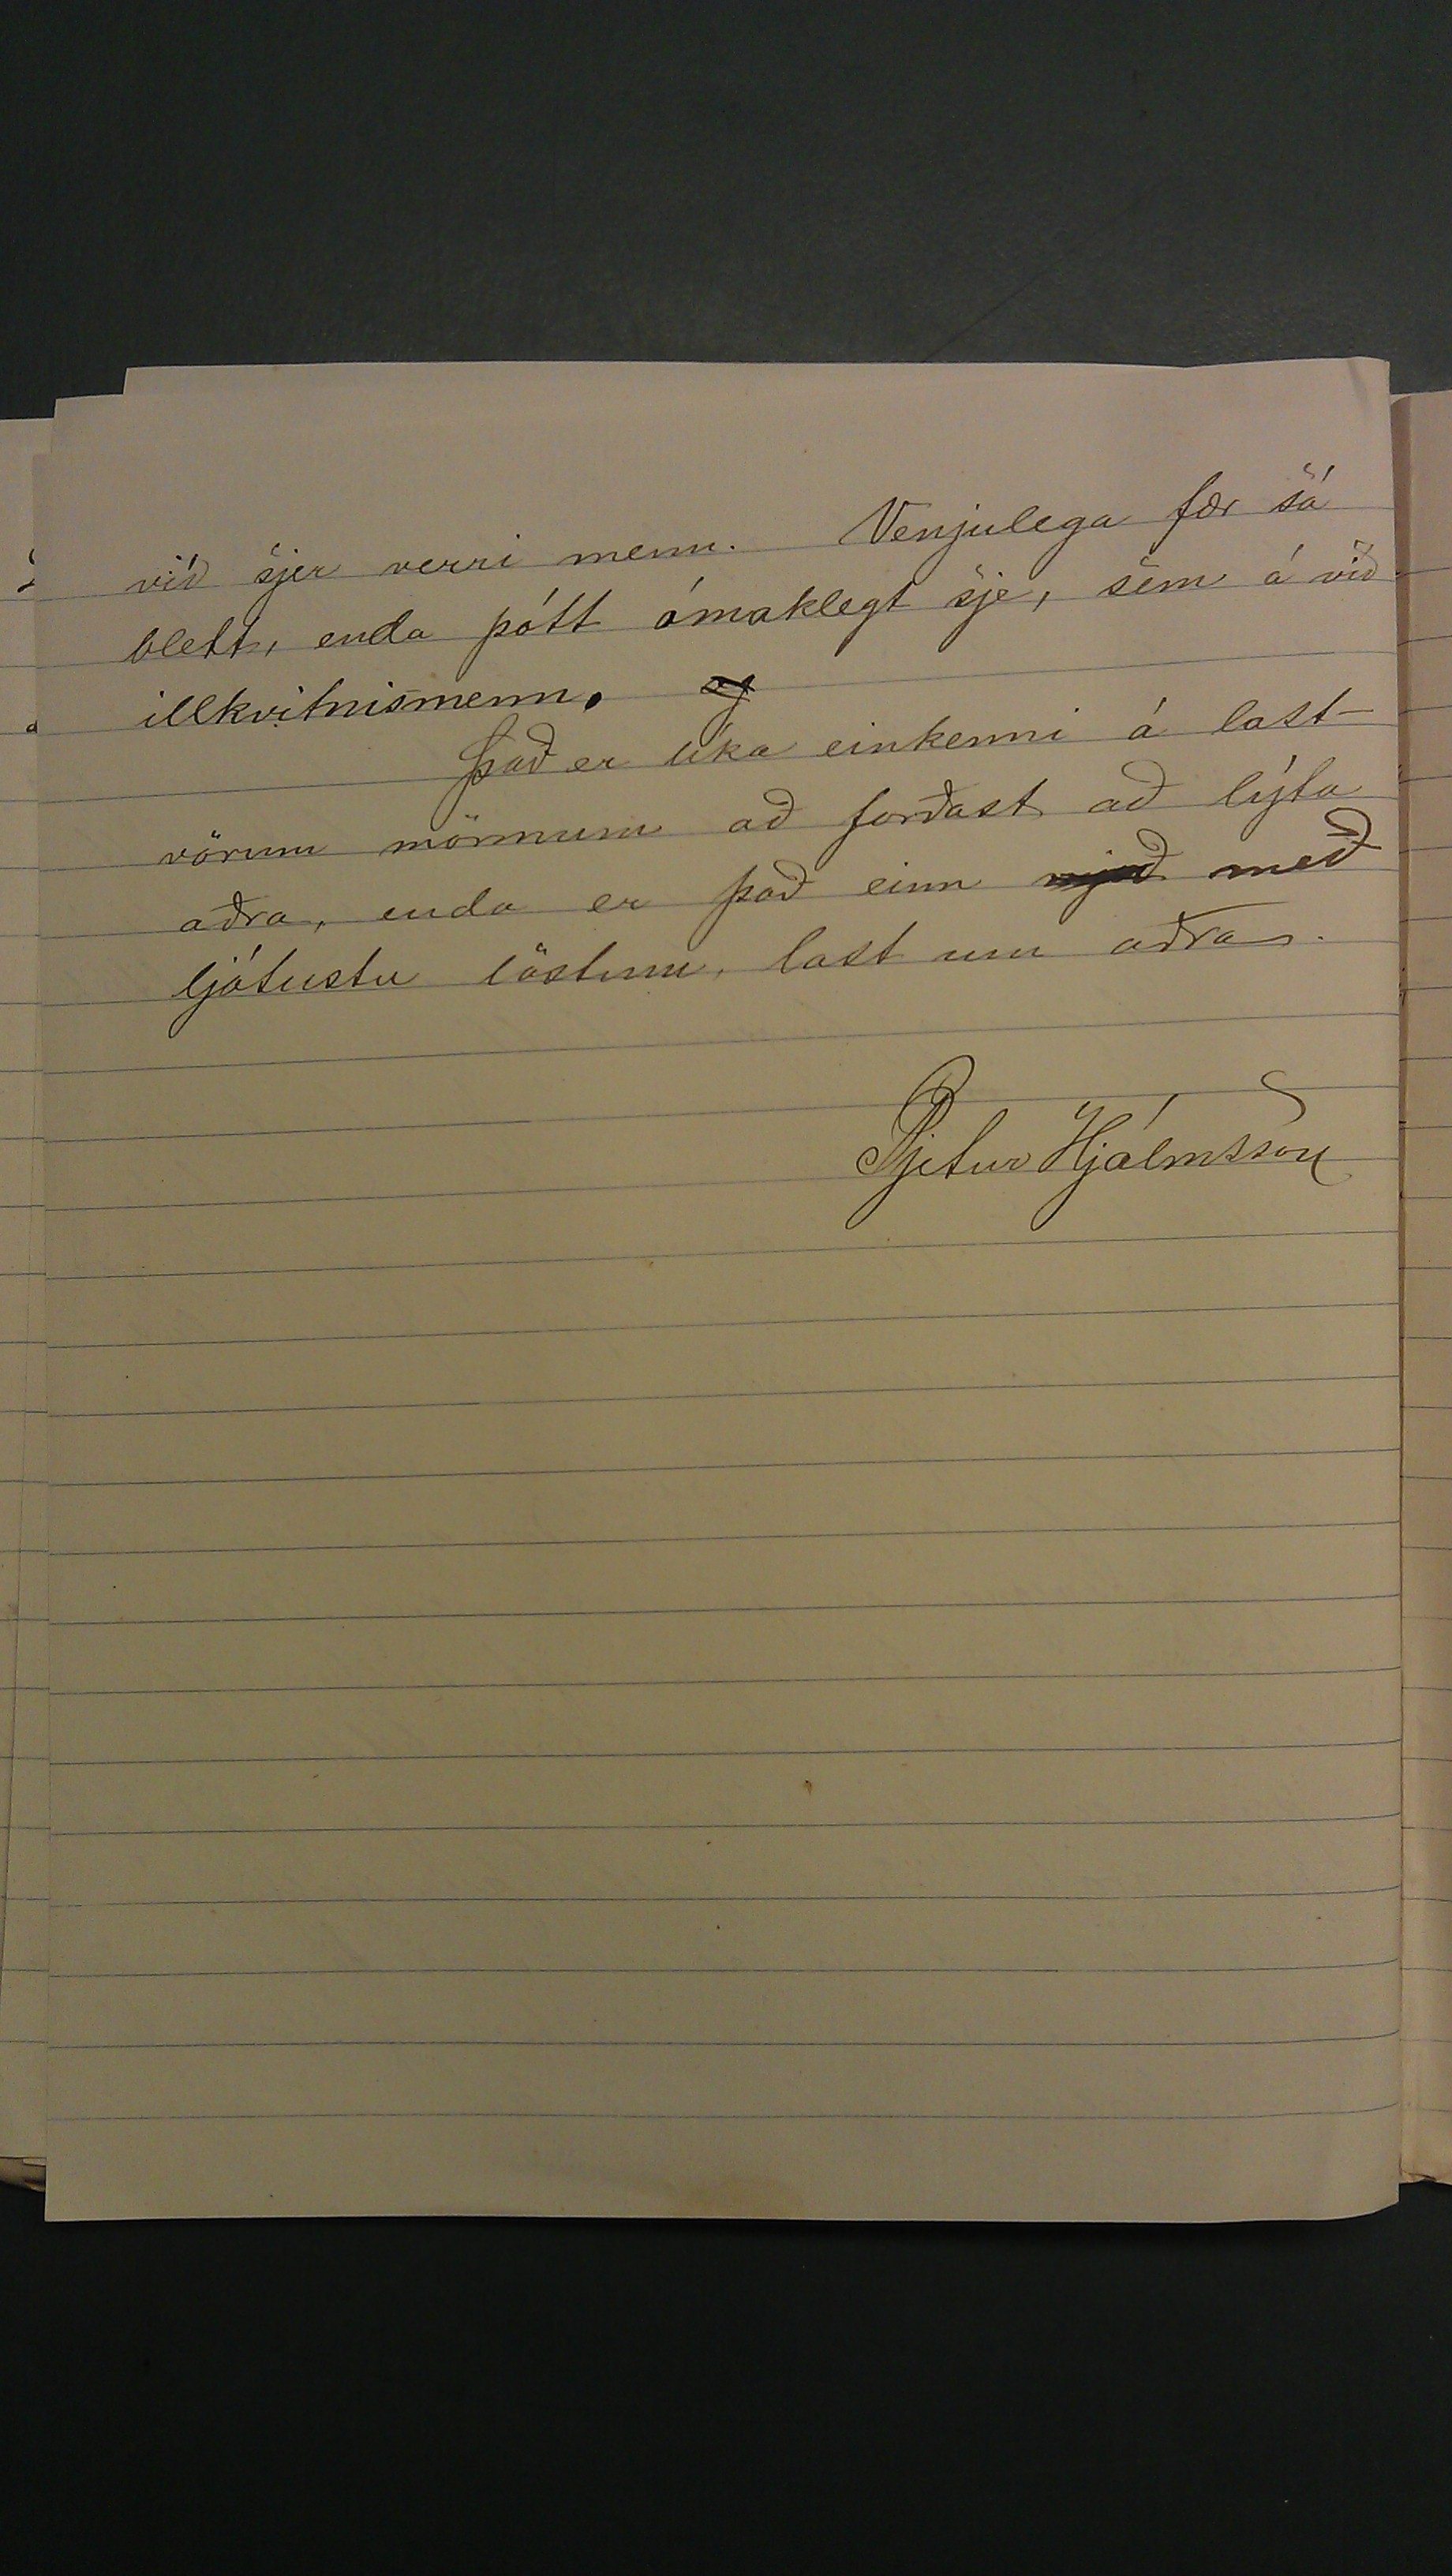 við sjer verri menn. Venjulega fær sá
blett, enda þótt ómaklegt sje, sem á við
illkvitnismenn. og
Það er líka einkenni á last-
vörum mönnum að forðast að lýta
aðra, enda er það einn með
ljótustu löstum, last um aðra.
Pjetur Hjálmsson